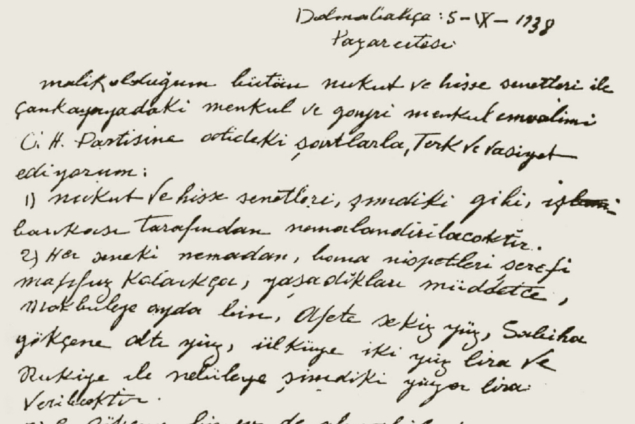 Dolmabahçe : 5-IX-1938
Pazartesi
malik olduğum bütün nukut ve hisse senetleri ile
Çankayadaki menkul ve gayri menkul emvalimi
C. H. Partisine atideki şartlarla, Terk ve vasiyet
ediyorum :
1) nukut ve hisse senetleri, şimdiki gibi, iş
bankası tarafından nemalandırılacaktır.
2) Her seneki nemadan, bana nispetleri şerefi
mahfuz kaldıkça, yaşadıkları müddetçe,
Makbuleye ayda bin, Afete sekiz yüz, Sabiha
gökçene altı yüz, ülküye iki yüz lira ve
Rukiye ile nebileye şimdiki yüzer lira
verilecektir.